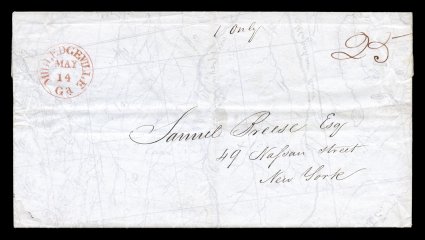 1 Only
25
MILLEDGEVILLE
MAY
14
Ga
Samuel Breese Esq
49 Nassau street
New York